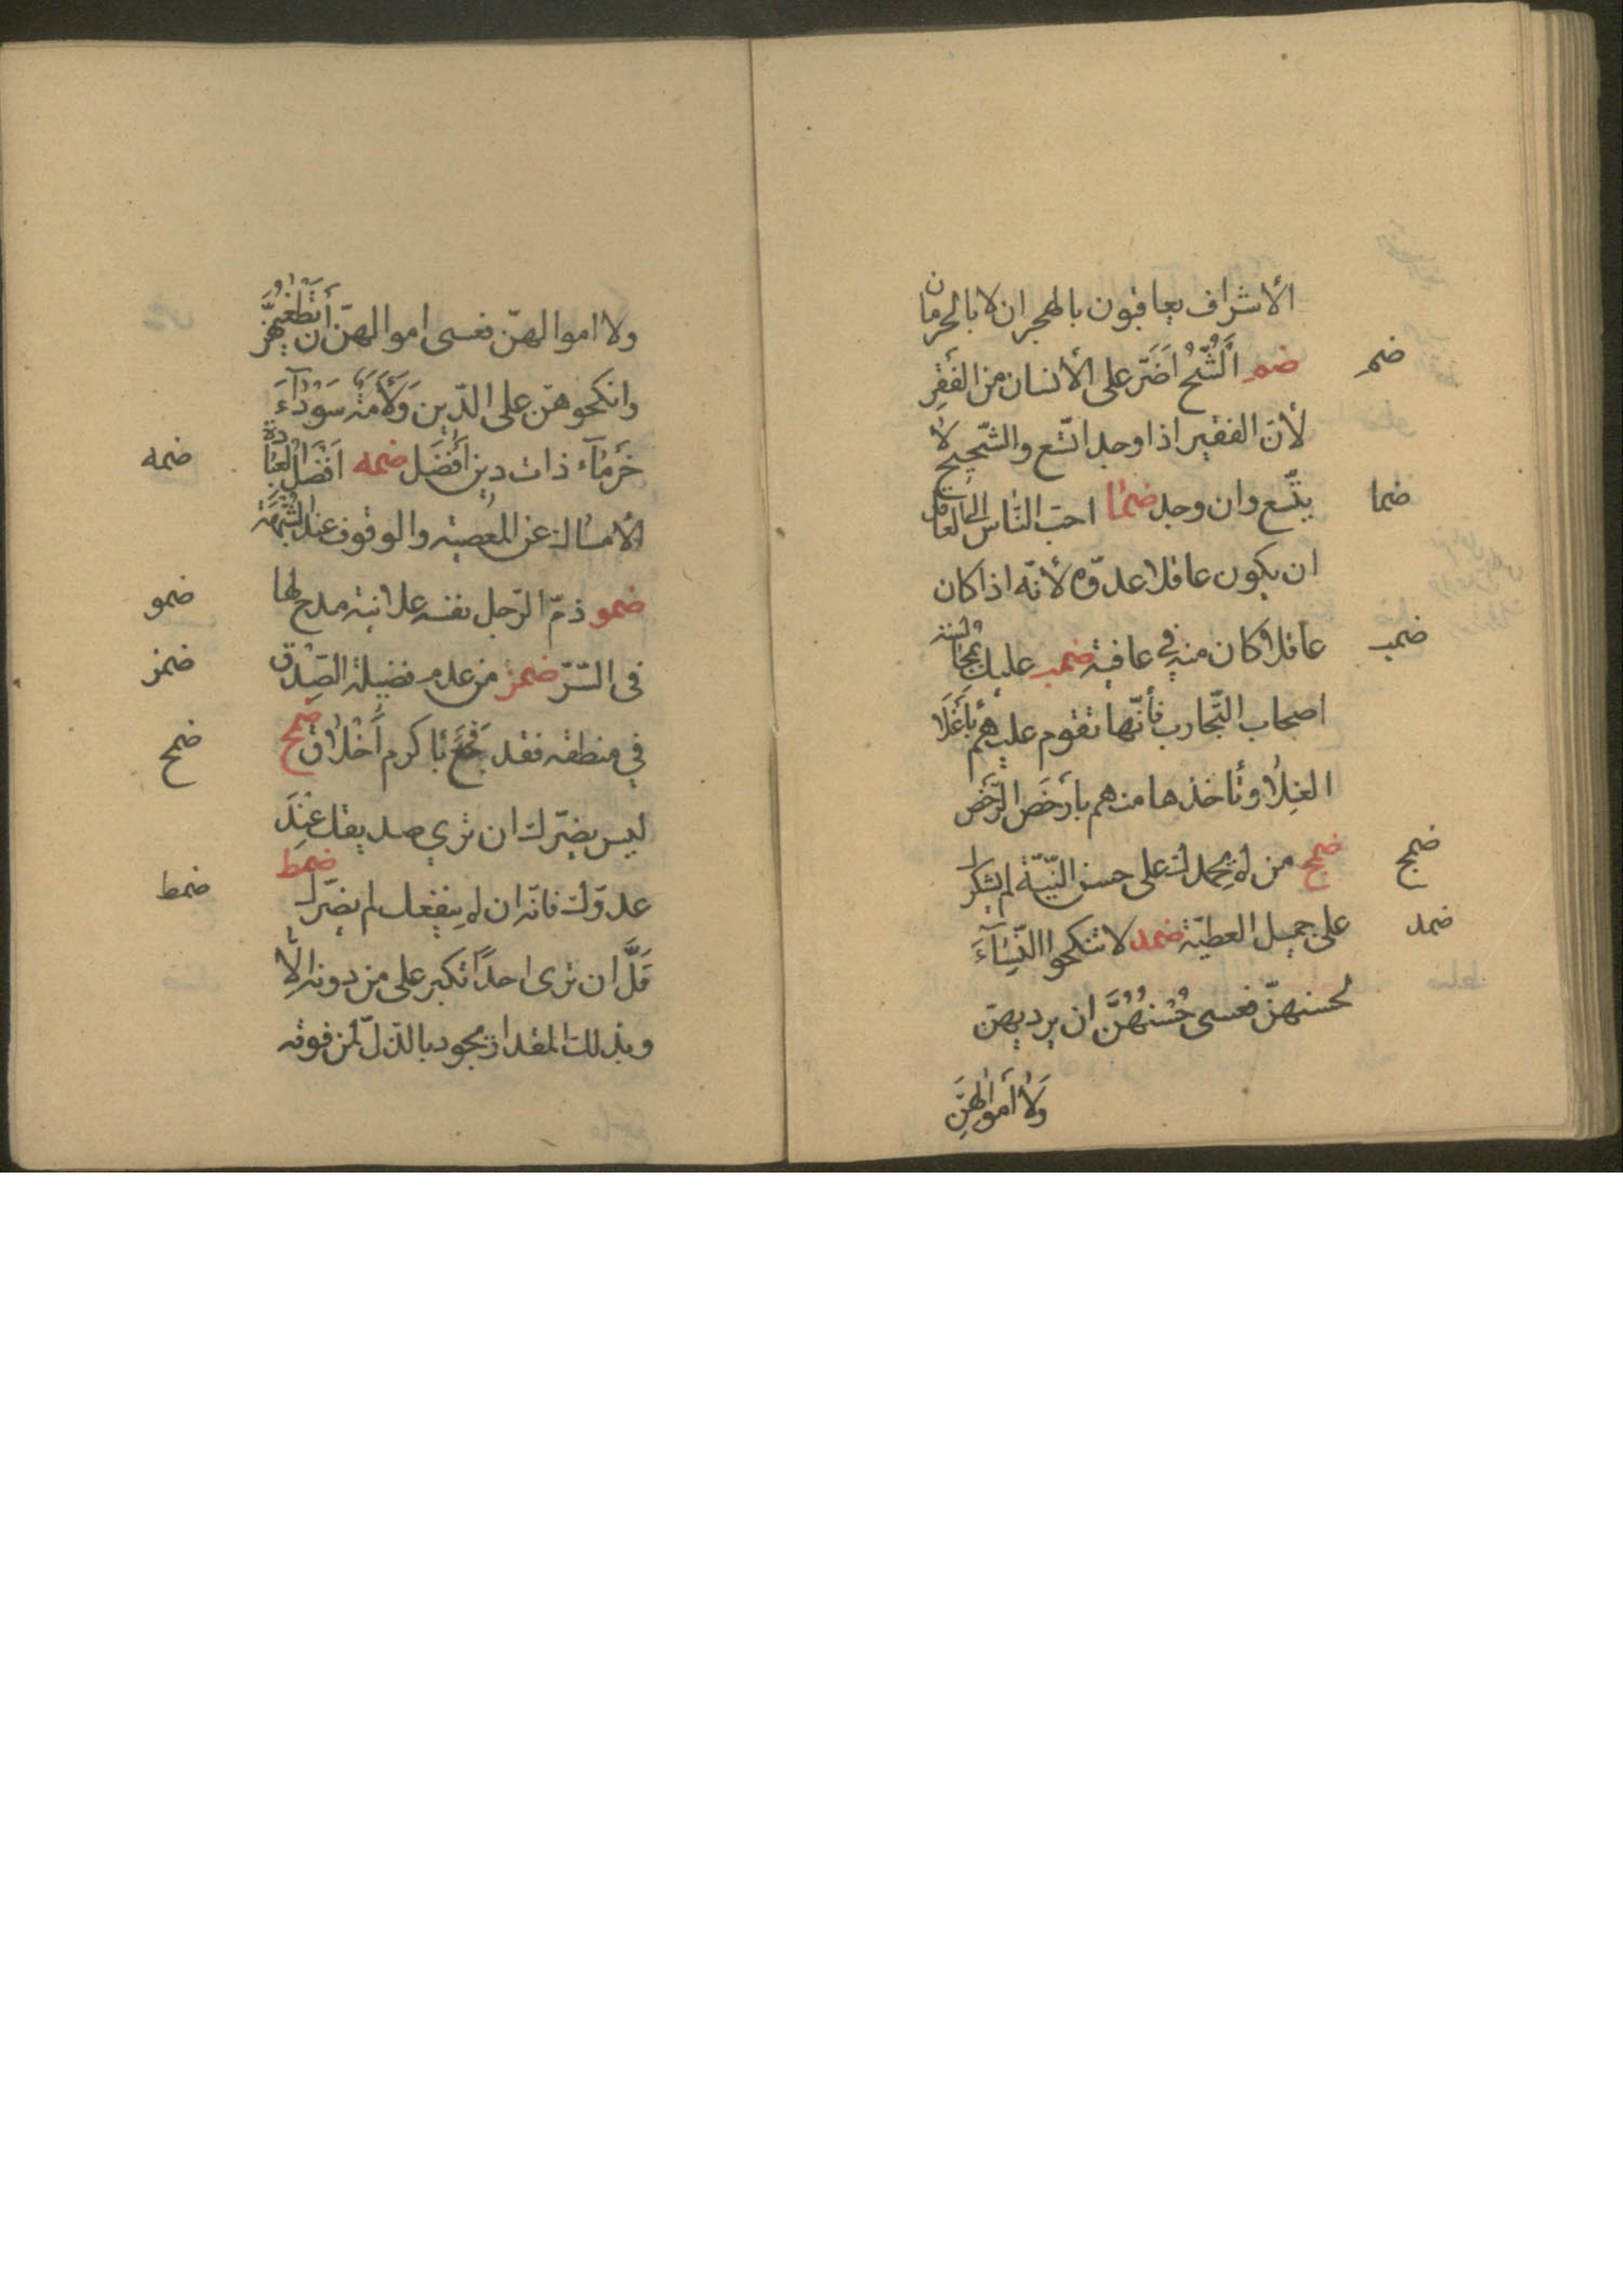 الأشراف يعاقبون بالهجران لا بالحرمان
ضم ضم اَلشُّحّ اَضَرّ على الأنسان من الفَقرِ
لأنّ الفقير اذا وجد اتّسع والشّحيح لا
ضما يتّسع وان وجد ضما احبّ النّاس الى العاقل
ان يكون عاقلا عدوّه لأنّه اذا كان
ضمب عاقلا كان منه في عافية ضمب عليك بمجالسة
اصحاب التّجارب فأنّها تقوم عليهم بأَغلَا
الغلا وتأخذها منهم بارخَص الرّخَص
ضمج ضمج من لم يحمدك على حسن النّيّة لم يشكرك
ضمد على جميل العطيّة ضمد لا تنكحوا النّسَآءَ
لحسنهنّ فعسى حُسْنُهُنَّ ان يرديهنّ
وَلا أَموالهنَّ
ولا اموالهنّ فعسى اموالهنّ ان أَن تُطْغِيهُنَّ
وانكحوهنّ على الدّين وَلَأَمَةٌ سَوْدَآءَ
ضمه خَرمَآء ذات دين أَفضَل ضمه اَفْضَلُ العِبَادة
الأمساك عن المعصية والوقوف عند الشُّبْهَة
ضمو ضمو ذمّ الرّجل نفسه علانية مدح لها
ضمز فى السّرّ ضمز من عدم فضيلة الصِّدْق
ضمح في منطقه فقد فُجِعَ بأكرم أَخْلاق ضمح
ليس يضرّك ان ترى صديقك عِنْدَ
ضمط عدوّك فانّه ان لم ينفعك لم يضرّك ضمط
قَلَّ ان ترى احدًا تكبر على من دونه الّا
وبذلك المقدار يجود بالذّلّ لمن فوقه